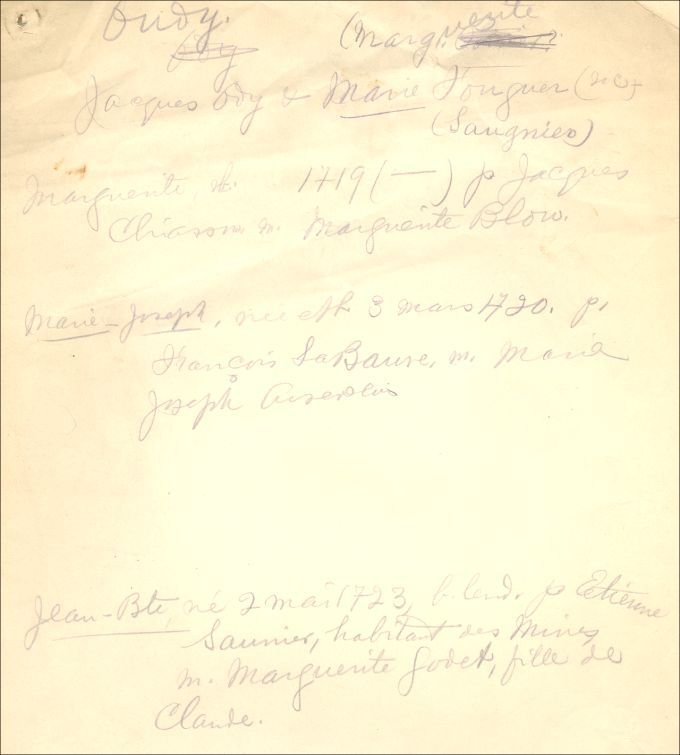 Oudy.
Ody
(Marguerite
Jacques Ody & Marie Fouguer (sic)
(Saugnier)
Marguerite, b. 1719 (—) p Jacques
Chiasson m. Marguerite Blou.
Marie-Joseph, née et b. 3 mars 1720. p.
Francois LaBauve, m. Marie
Joseph
Jean-Bte, né 2 mai 1723, b. lend. p Etienne
Saunier, habitant des Mines
m. Marguerite Godet, fille de
Claude.